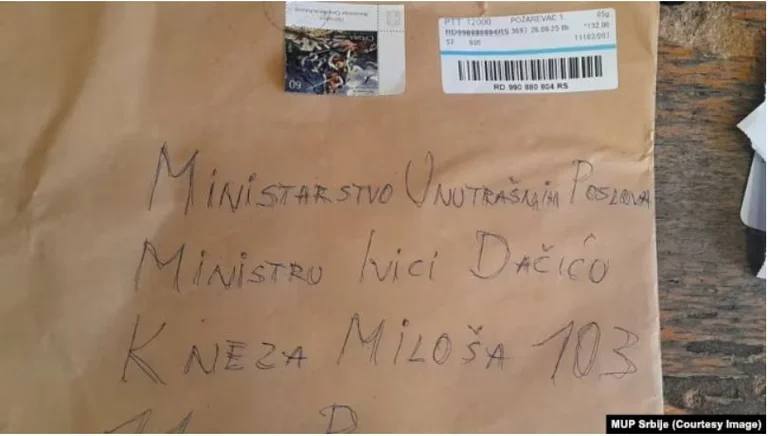 09
PTT 12000 POŽAREVAC 1
RD990880804RS
11102/001
RD 990 880 804 RS
MINISTARSTVO UNUTRAŠNJIH POSLOVA
MINISTRU IVICI DAČIĆU
KNEZA MILOŠA 103
11
MUP Srbije (Courtesy Image)